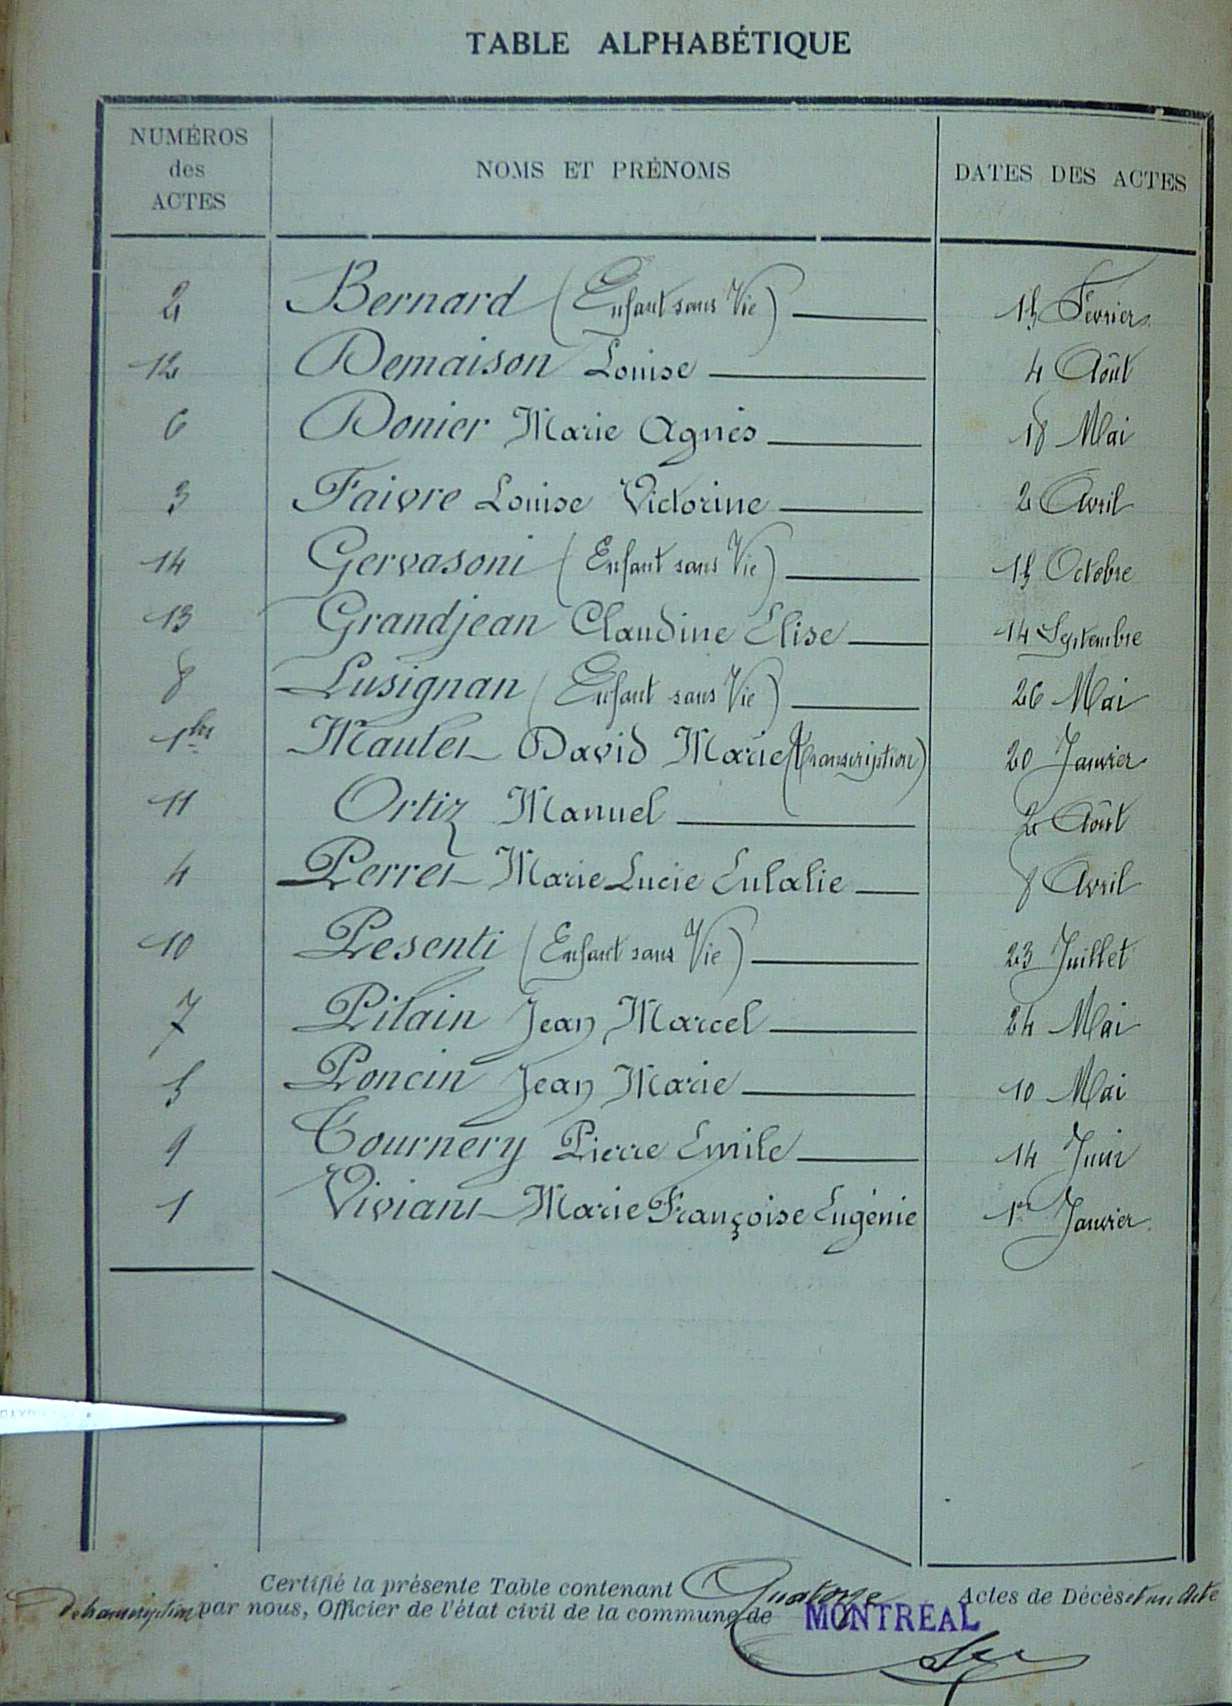 TABLE ALPHABÉTIQUE
NUMÉROS des ACTES NOMS ET PRÉNOMS DATES DES ACTES
2 Bernard (Enfant sans Vie) 15 Février
12 Demaison Louise 4 Août
6 Donier Marie Agnès 18 Mai
3 Faivre Louise Victorine 2 Avril
14 Gervasoni (Enfant sans Vie) 15 Octobre
13 Grandjean Claudine Elise 14 Septembre
8 Lusignan (Enfant sans Vie) 26 Mai
1bis Maulet David Marie (transcription) 20 Janvier
11 Ortiz Manuel 2 Août
4 Perret Marie Lucie Eulalie 8 Avril
10 Pesenti (Enfant sans Vie) 23 Juillet
7 Pilain Jean Marcel 24 Mai
5 Poncin Jean Marie 10 Mai
9 Tournery Pierre Emile 14 Juin
1 Viviant Marie Françoise Eugénie 1er Janvier
Certifié la présente Table contenant Quatorze Actes de Décès et un Acte
de transcription par nous, Officier de l'état civil de la commune de MONTRÉAL